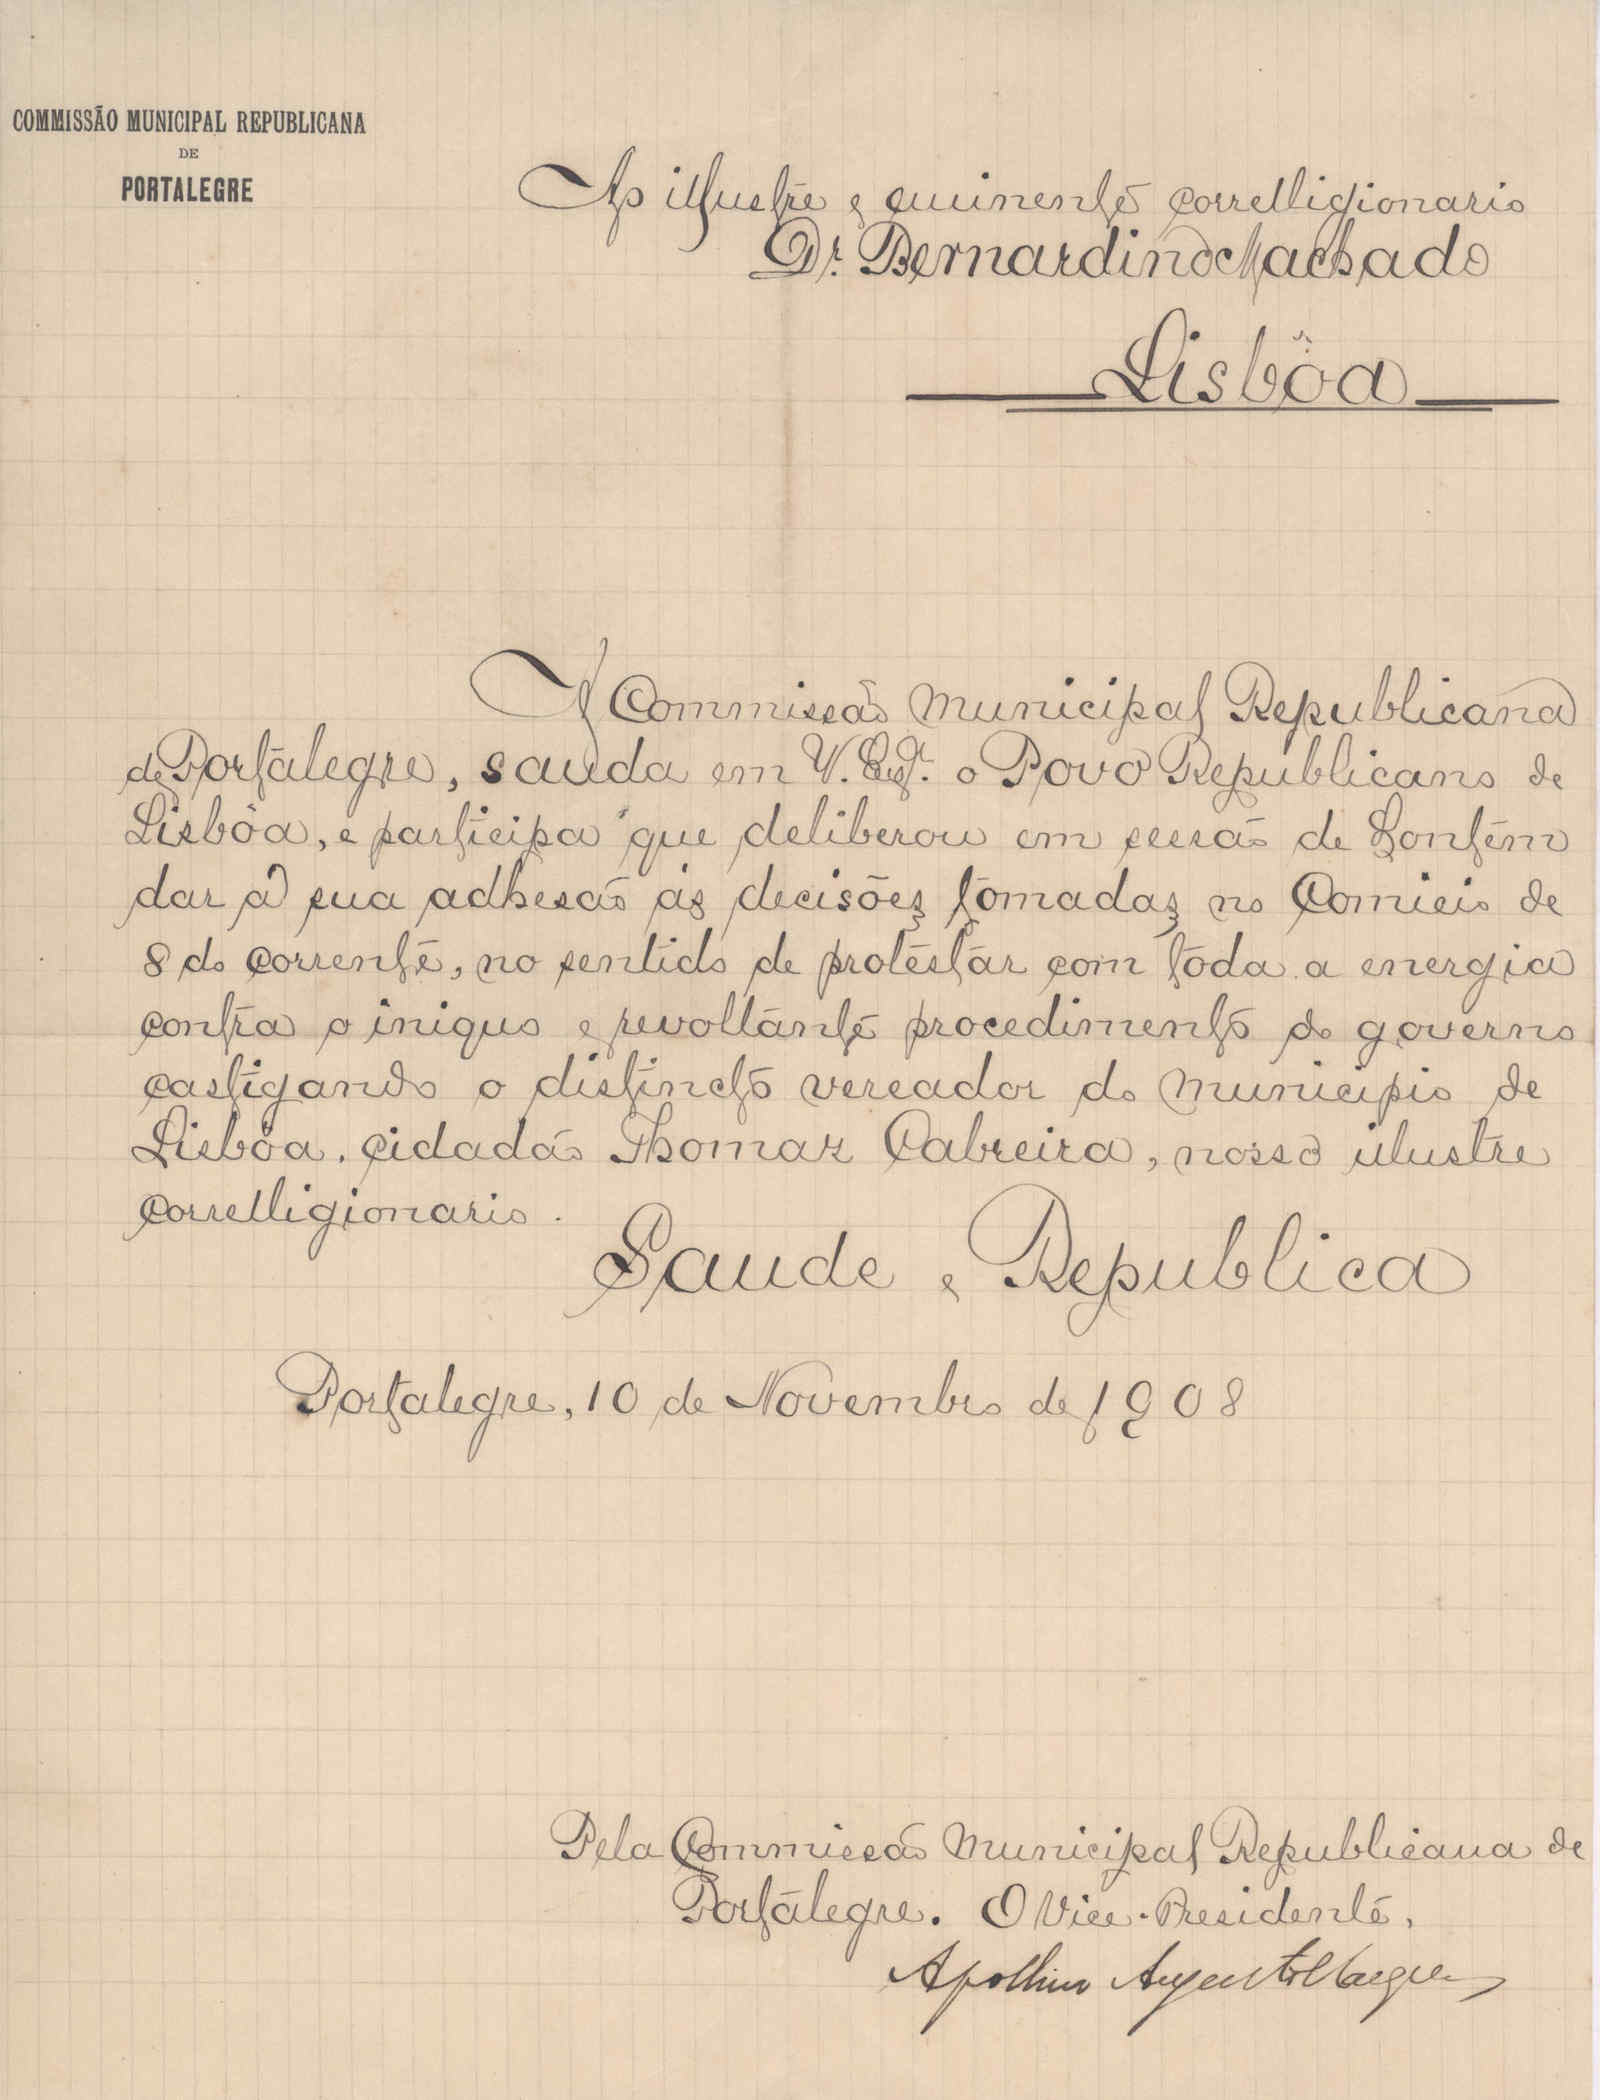 COMMISSÃO MUNICIPAL REPUBLICANA
DE
PORTALEGRE
Ao illustre e eminente correlligionario
Dr. Bernardino Machado
Lisbôa
A Commissão Municipal Republicana
de Portalegre, sauda em V. Exª. o Povo Republicano de
Lisbôa, e participa que deliberou em sessão de hontem
dar a sua adhesão ás decisões tomadas no Comicio de
8 do corrente, no sentido de protestar com toda a energia
contra o iniquo e revoltante procedimento do governo
castigando o distincto vereador do municipio de
Lisbôa, cidadão Thomaz Cabreira, nosso ilustre
correlligionario.
Saude e Republica
Portalegre, 10 de Novembro de 1908
Pela Commissão Municipal Republicana de
Portalegre. O Vice-Presidente,
Apollino Augusto Marques